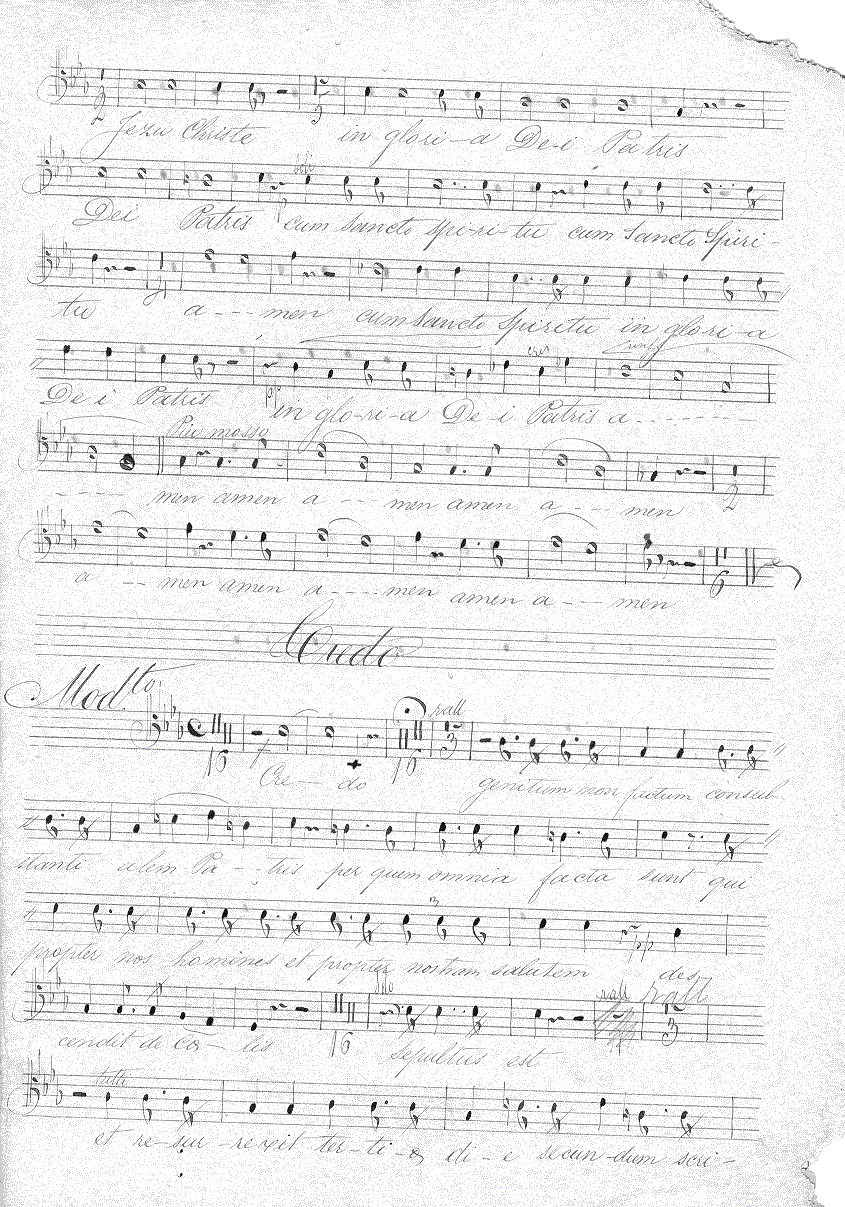 2 3
Jezu Christe in glori-a De-i Patris
Dei Patris cum Sancto spi-ri-tu cum Sancto Spiri-
tu a --- men cum Sancto Spiritu in glo-ri-a
De i Patris in glo-ri-a De i Patris a --------
Piu mosso
---- men amen a --- men amen a --- men 2
a -- men amen a ---- men amen a --- men 6
Credo
Modto.
rall
16 7 16 3
Cre -- do genitum non factum consub
stanti alem Pa -- tris per quem omnia facta sunt qui
3
pp
propter nos homines et propter nostram salutem des
rall rall
cendit de coe - lis 16 Sepultus est 3
tutti
et re-sur-rexit ter-ti-a di-e secun-dum scri-